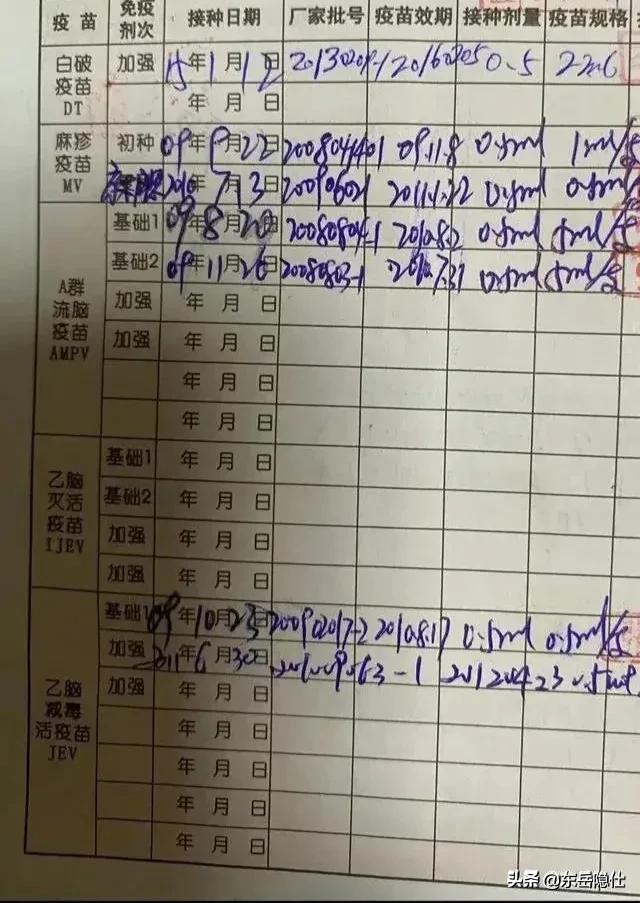 疫苗 免疫剂次 接种日期 厂家批号 疫苗效期 接种剂量 疫苗规格
白破疫苗DT 加强 15年1月12日 20160205 0.5
年 月 日
麻疹疫苗MV 初种 09年9月22日 200804401 09.11.8 0.5ml 1ml/
2010年7月13日 20090602 2011.1.22 0.5ml
A群流脑疫苗AMPV 基础1 09年8月20日 20080804-1 2010.8.2 0.5ml 5ml/
基础2 09年11月26日 20080803-1 2010.7.31 0.5ml 5ml/
加强 年 月 日
加强 年 月 日
年 月 日
年 月 日
乙脑灭活疫苗IJEV 基础1 年 月 日
基础2 年 月 日
加强 年 月 日
加强 年 月 日
乙脑减毒活疫苗JEV 基础1 09年10月23日 200902017-2 2010.8.17 0.5ml 0.5ml/
加强 2011年6月30日 201009063-1 20120423 0.5ml
加强 年 月 日
年 月 日
年 月 日
年 月 日
年 月 日
头条 @东岳隐仕